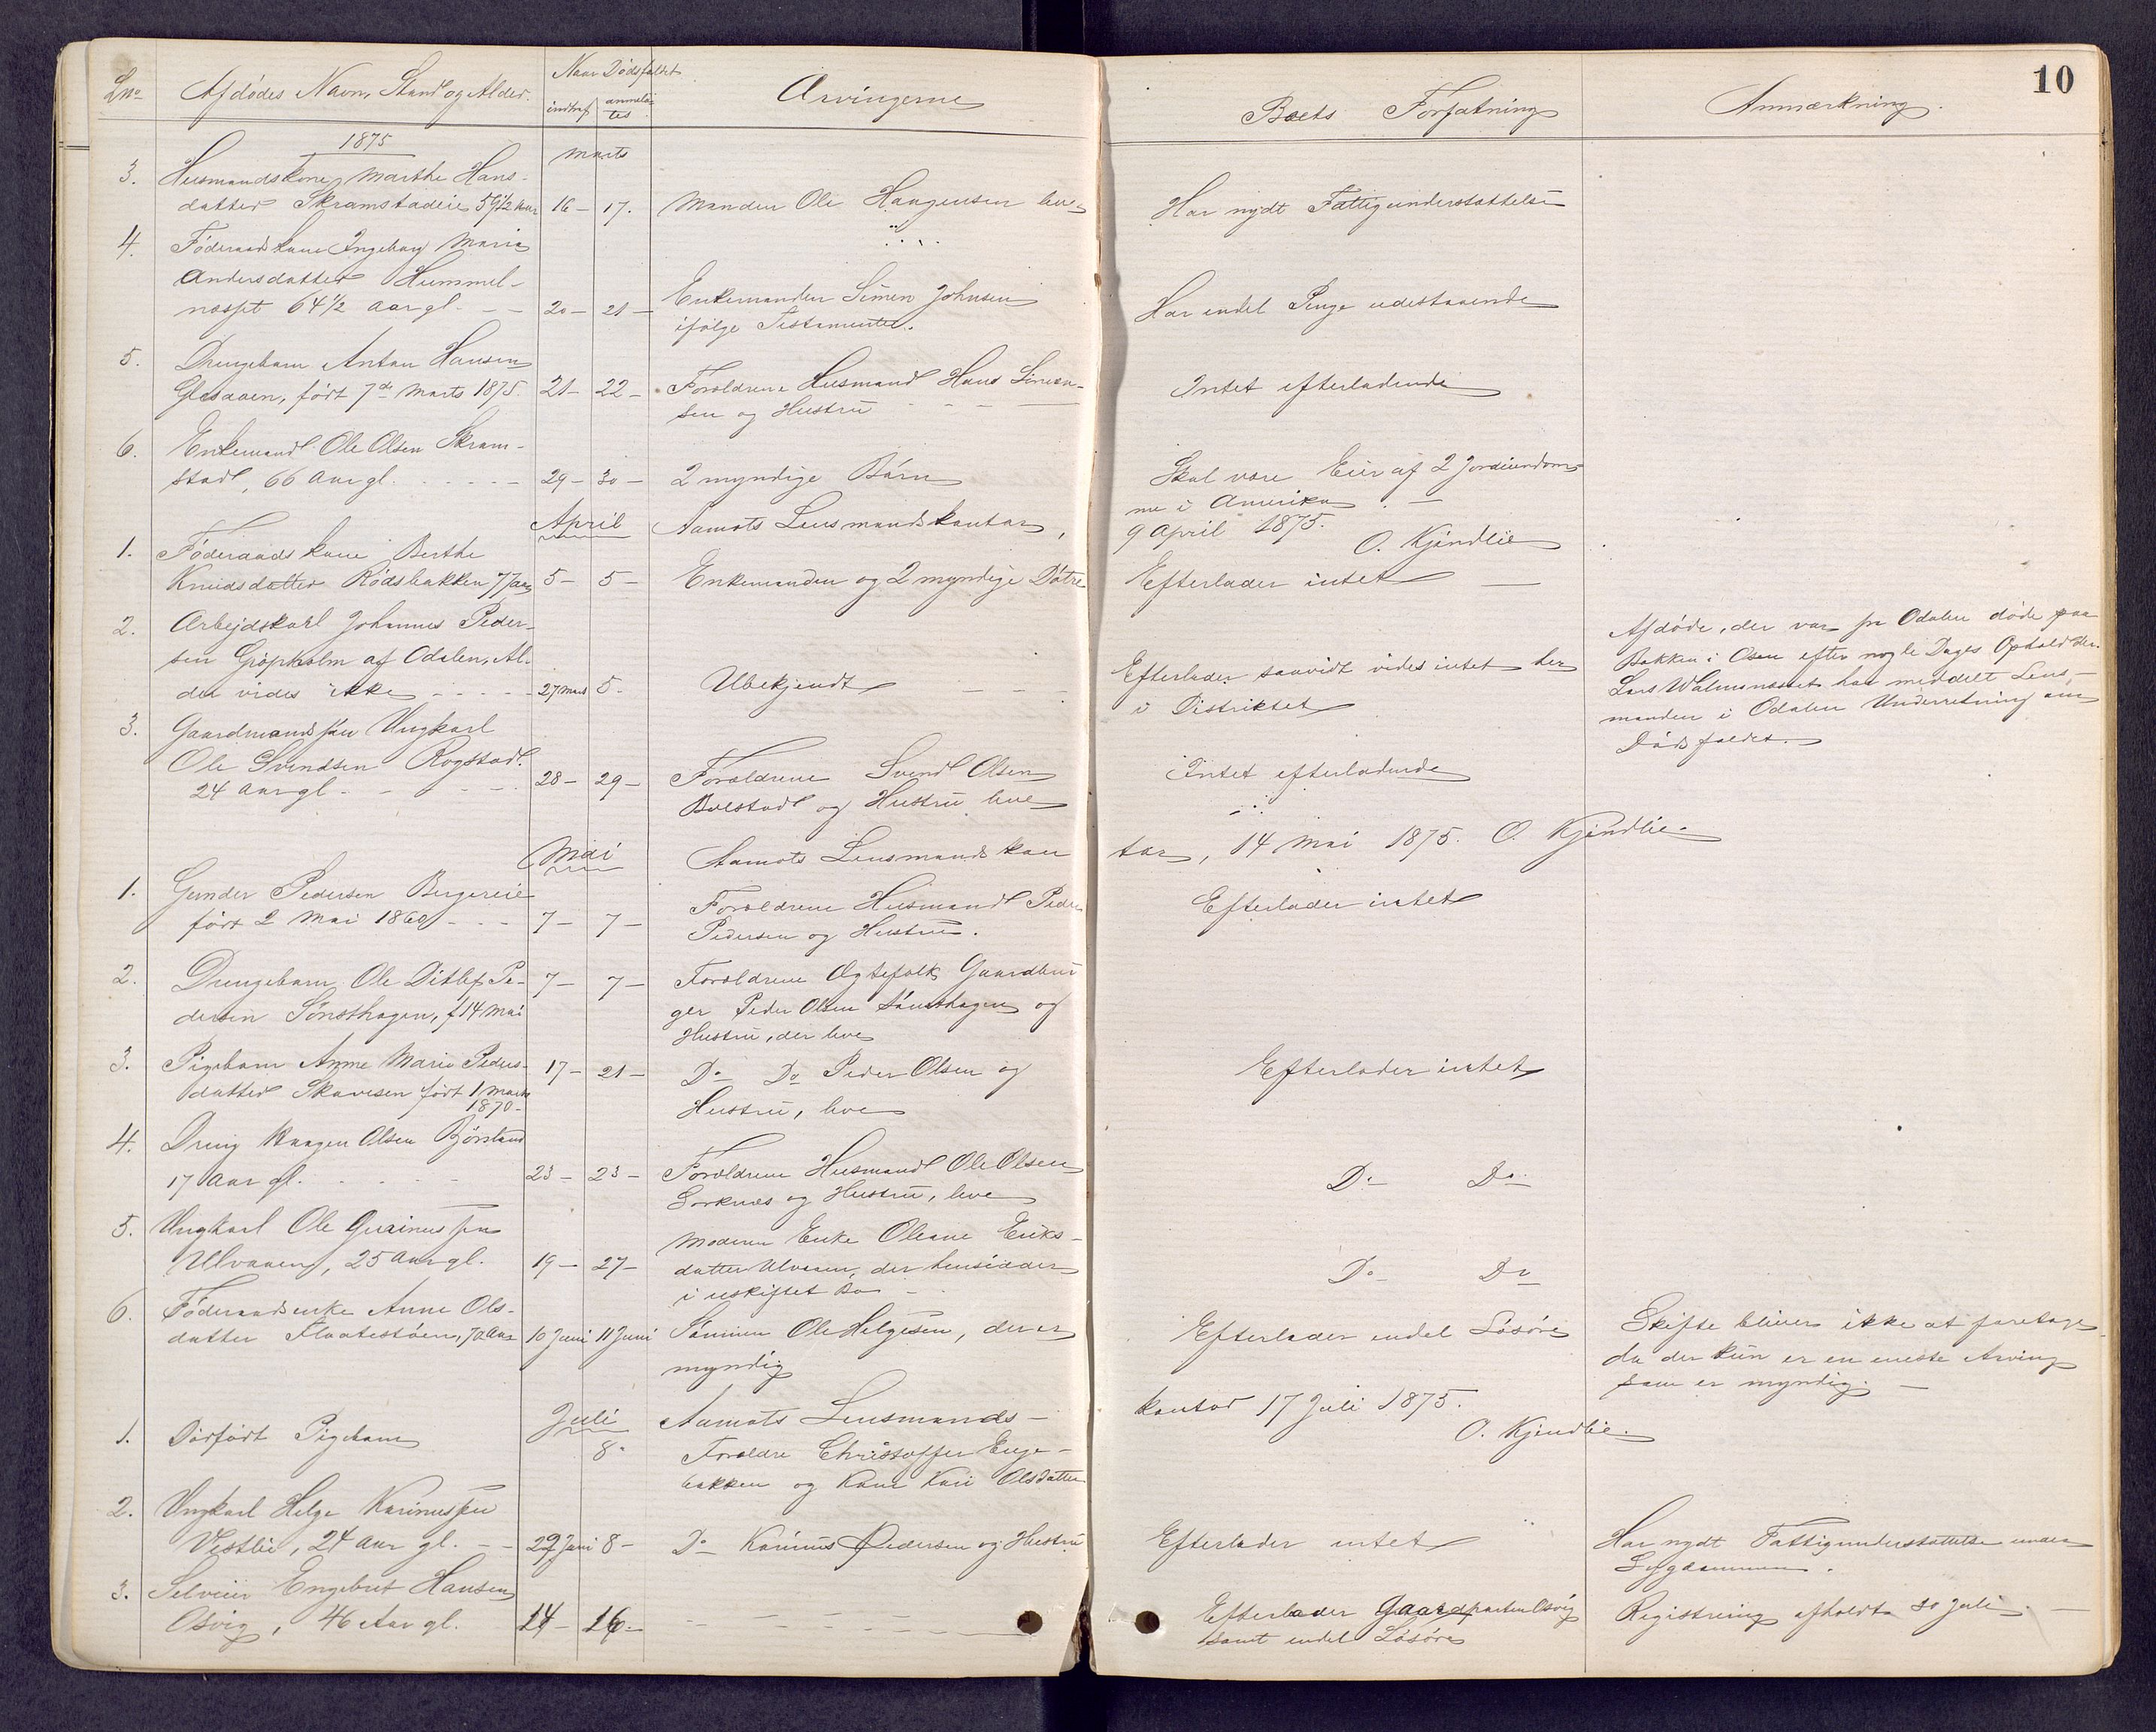 10
Lno Afdødes Navn, Stand og Alder. Naar Dødsfaldet indtraf anmeldtes Arvingerne Boets Forfatning Anmærkning.
1875 Marts
3. Husmandskone Marthe Hans-
datter Skramstadeie 59 1/2 Aar 16 - 17. Manden Ole Haagensen leve Har nydt Fattigunderstøttelse
4. Føderaadskone Ingeborg Maria
Andersdatter Hummel-
næsset 64 1/2 Aar gl. - - 20 - 21 - Enkemanden Simen Johnsen Har endel Penge udestaaende
ifølge Testamentet.
5. Drengebarn Anton Hansen
Glesaaen, født 7de Marts 1875. 21 - 22 - Forældrene Husmand Hans Simen- Intet efterladende
sen og Hustru
6. Enkemand Ole Olsen Skram-
stad, 66 Aar gl. 29 - 30 - 2 myndige Børn Skal være Eier af 2 Jordeiendom-
me i Amerika. -
April Aamots Lensmandskontor, 9 April 1875. O. Kjendlie
1. Føderaadskone Berthe
Knudsdatter Rødsbakken 77 Aar 5 - 5 - Enkemanden og 2 myndige Døtre Efterlader intet -
2. Arbejdskarl Johannes Peder-
sen Grøpholm af Odalen, Al-
der vides ikke 27 Marts 5 - Ubekjendt - - - Efterlader saavidt vides intet her
i Distriktet
Afdøde, der var fra Odalen døde paa
Bakken i Osen efter nogle Dages Ophold der.
Lars Walmsnæsset har meddelt Lens-
manden i Odalen Underretning om
Dødsfaldet.
3. Gaardmandssøn Ungkarl
Ole Svendsen Rogstad.
24 Aar gl. - - - 28 - 29 - Forældrene Svend Olsen Intet efterladende
Bolstad og Hustru leve
Mai Aamots Lensmandskon tor, 14 Mai 1875. O. Kjendlie.
1. Gunder Pedersen Bergereie
født 2 Mai 1860 - - 7 - 7 - Forældrene Husmand Peder Efterlader intet
Pedersen og Hustru.
2. Drengebarn Ole Ditlef Pe- 7 - 7 - Forældrene Ægtefolk Gaardbru
dersen Sønsthagen, f 14 Mai ger Peder Olsen Sønsthagen og
Hustru, der leve
3. Pigebarn Anne Marie Peders- 17 - 21 - Do Do Peder Olsen og Efterlader intet
datter Skavesen født 1 Marts
1870 - Hustru, leve
4. Dreng Haagen Olsen Bjørstand
17 Aar gl. 23 - 23 - Forældrene Husmand Ole Olsen Do Do
Sorknes og Hustru, leve
5. Ungkarl Ole Guirinussen
Ulvaaen, 25 Aar gl. 19 - 27 - Moderen Enke Oleane Eriks-
datter Ulvaaen, der hensidder Do Do
i uskiftet Bo -
6. Føderaadsenke Anne Ols-
datter Flaatestøen, 70 Aar 10 Juni 11 Juni Sønnen Ole Helgesen, der er
myndig Efterlader endel Løsøre
Skifte bliver ikke at foretage,
da der kun er en eneste Arving
som er myndig. -
Juli Aamots Lensmands- kontor 17 Juli 1875.
O. Kjendlie.
1. Dødfødt Pigebarn 8 - Forældre Christoffer Enge-
bakken og Kone Kari Olsdatter
2. Ungkarl Helge Karinussen
Vestlie, 24 Aar gl. - - 29 Juni 8 - Do Karinus Pedersen og Hustru Efterlader intet
Har nydt Fattigunderstøttelse under
Sygdommen.
3. Selveier Engebret Hansen
Osvig, 46 Aar gl. 14 - 16 - Efterlader Gaardparten Osvig
samt endel Løsøre
Registrering afholdt 30 Juli. -